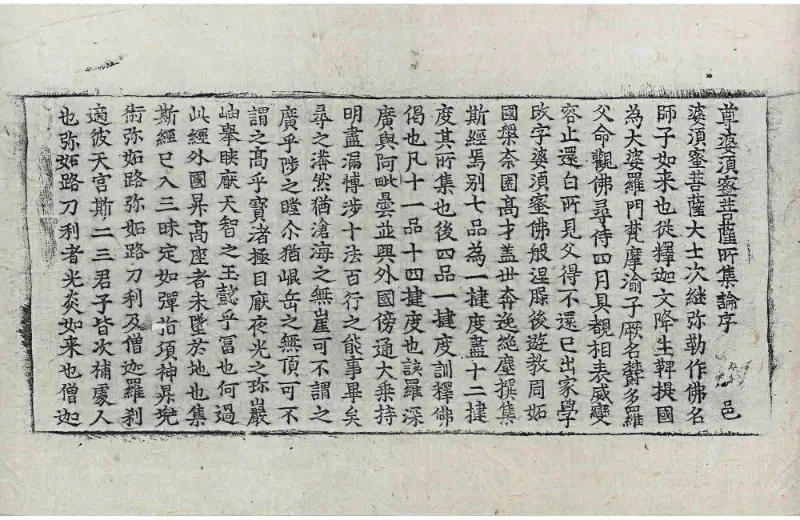 尊婆須蜜菩薩所集論序 邑
婆須蜜菩薩大士次継弥勒作佛名
師子如来也從釋迦文降生鞞提國
為大婆羅門梵摩渝子厥名欝多羅
父命觀佛尋侍四月具覩相表威變
容止還白所見父得不還已出家學
改字婆須蜜佛般涅槃後遊教周妬
國槃奈園高才盖世奔逸絶塵撰集
斯經焉别七品為一揵度盡十二揵
度其所集也後四品一揵度訓釋佛
偈也凡十一品十四揵度也該羅深
廣與阿毗曇並興外國傍通大乗持
明盡漏博涉十法百行之能事畢矣
尋之漭然猶滄海之無崖可不謂之
廣乎陟之瞠尒猶崐岳之無頂可不
謂之高乎寶渚極目厭夜光之珎巖
岫舉睫厭天智之玉懿乎冨也何過
此經外國昇高座者未墜於地也集
斯經已入三昧定如彈指頃神昇兜
術弥妬路弥妬路刀利及僧迦羅刹
適彼天宫斯二三君子皆次補處人
也弥妬路刀利者光炎如来也僧迦